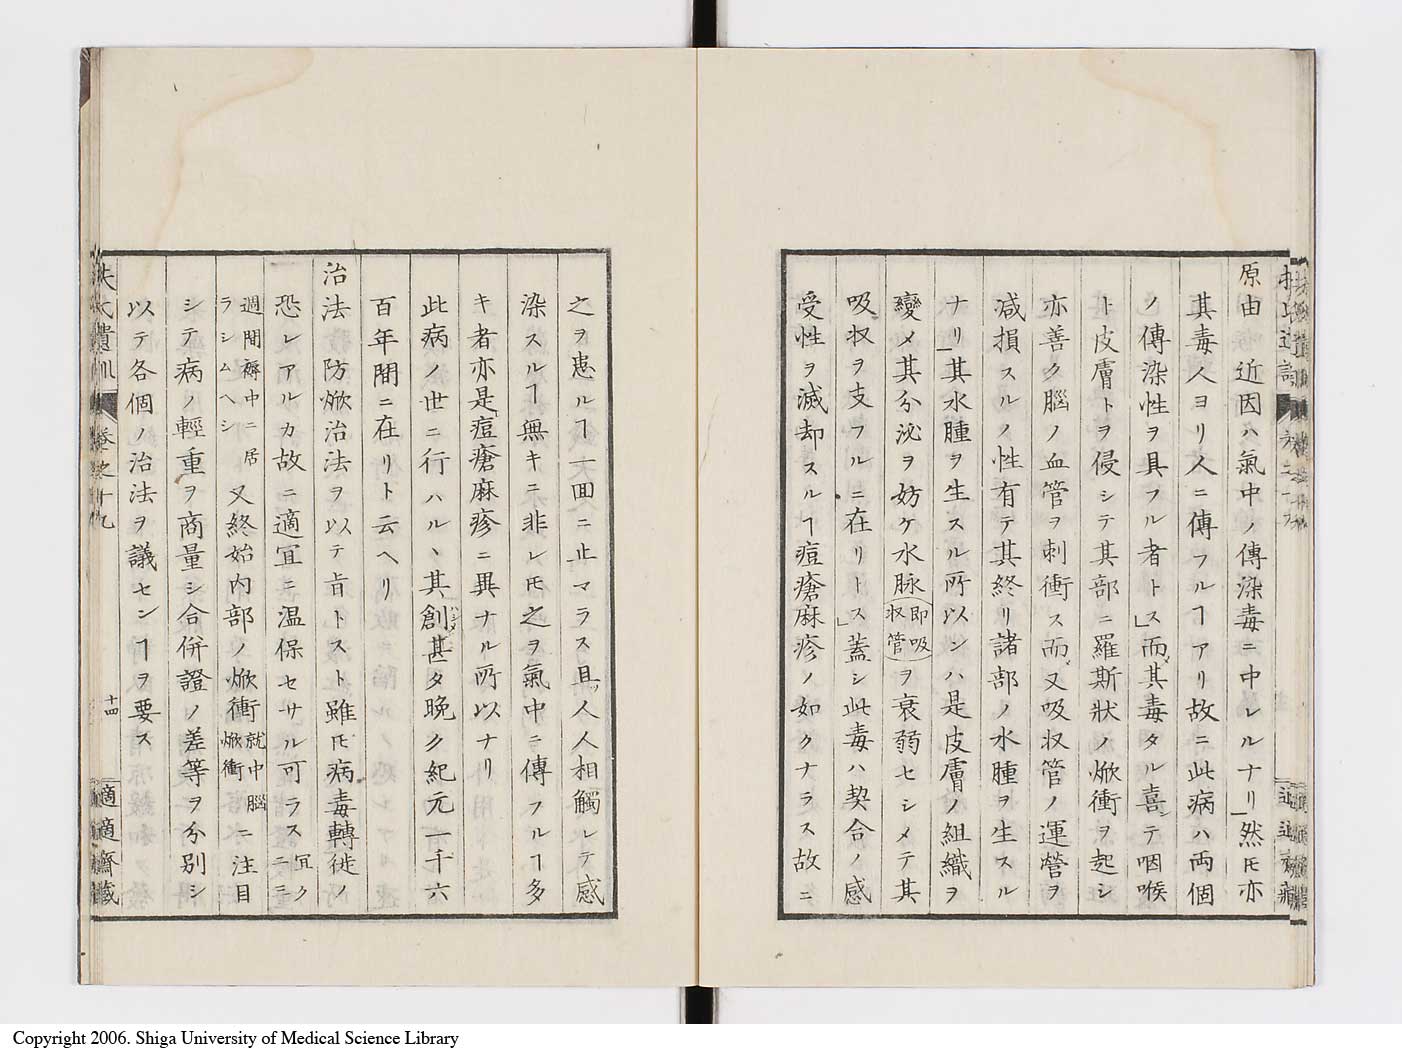 原由　近因ハ氣中ノ傳染毒ニ中レルナリ」然𪜈亦
其毒人ヨリ人ニ傳フルヿアリ故ニ此病ハ両個
ノ傳染性ヲ具フル者トス」而〆其毒タル喜テ咽喉
ト皮膚トヲ侵シテ其部ニ羅斯状ノ焮衝ヲ起シ
亦善ク腦ノ血管ヲ刺衝ス而〆又吸収管ノ運營ヲ
减損スルノ性有テ其終リ諸部ノ水腫ヲ生スル
ナリ」其水腫ヲ生スル所以ンハ是皮膚ノ組織ヲ
變メ其分泌ヲ妨ケ水脉(即吸収管)ヲ衰弱セシメテ其
吸収ヲ支フルニ在リトス」蓋シ此毒ハ契合ノ感
受性ヲ滅却スルヿ痘瘡麻疹ノ如クナラス故ニ
之ヲ患ルヿ一面ニ止マラス且ツ人人相觸レテ感
染スルヿ無キニ非レ𪜈之ヲ氣中ニ傳フルヿ多
キ者亦是レ痘瘡麻疹ニ異ナル所以ナリ
此病ノ世ニ行ハルヽ其創メ甚タ晩ク紀元一千六
ハジメ
百年間ニ在リト云ヘリ
治法　防焮治法ヲ以テ旨トスト雖𪜈病毒轉徙ノ
恐レアルカ故ニ適宜ニ温保セサル可ラス宜ク三
週間褥中ニ居ラシムヘシ又終始内部ノ焮衝就中腦焮衝ニ注目
シテ病ノ輕重ヲ商量シ合併證ノ差等ヲ分別シ
以テ各個ノ治法ヲ議センヿヲ要ス
扶氏遺訓　巻之十九　十四　適適齋藏